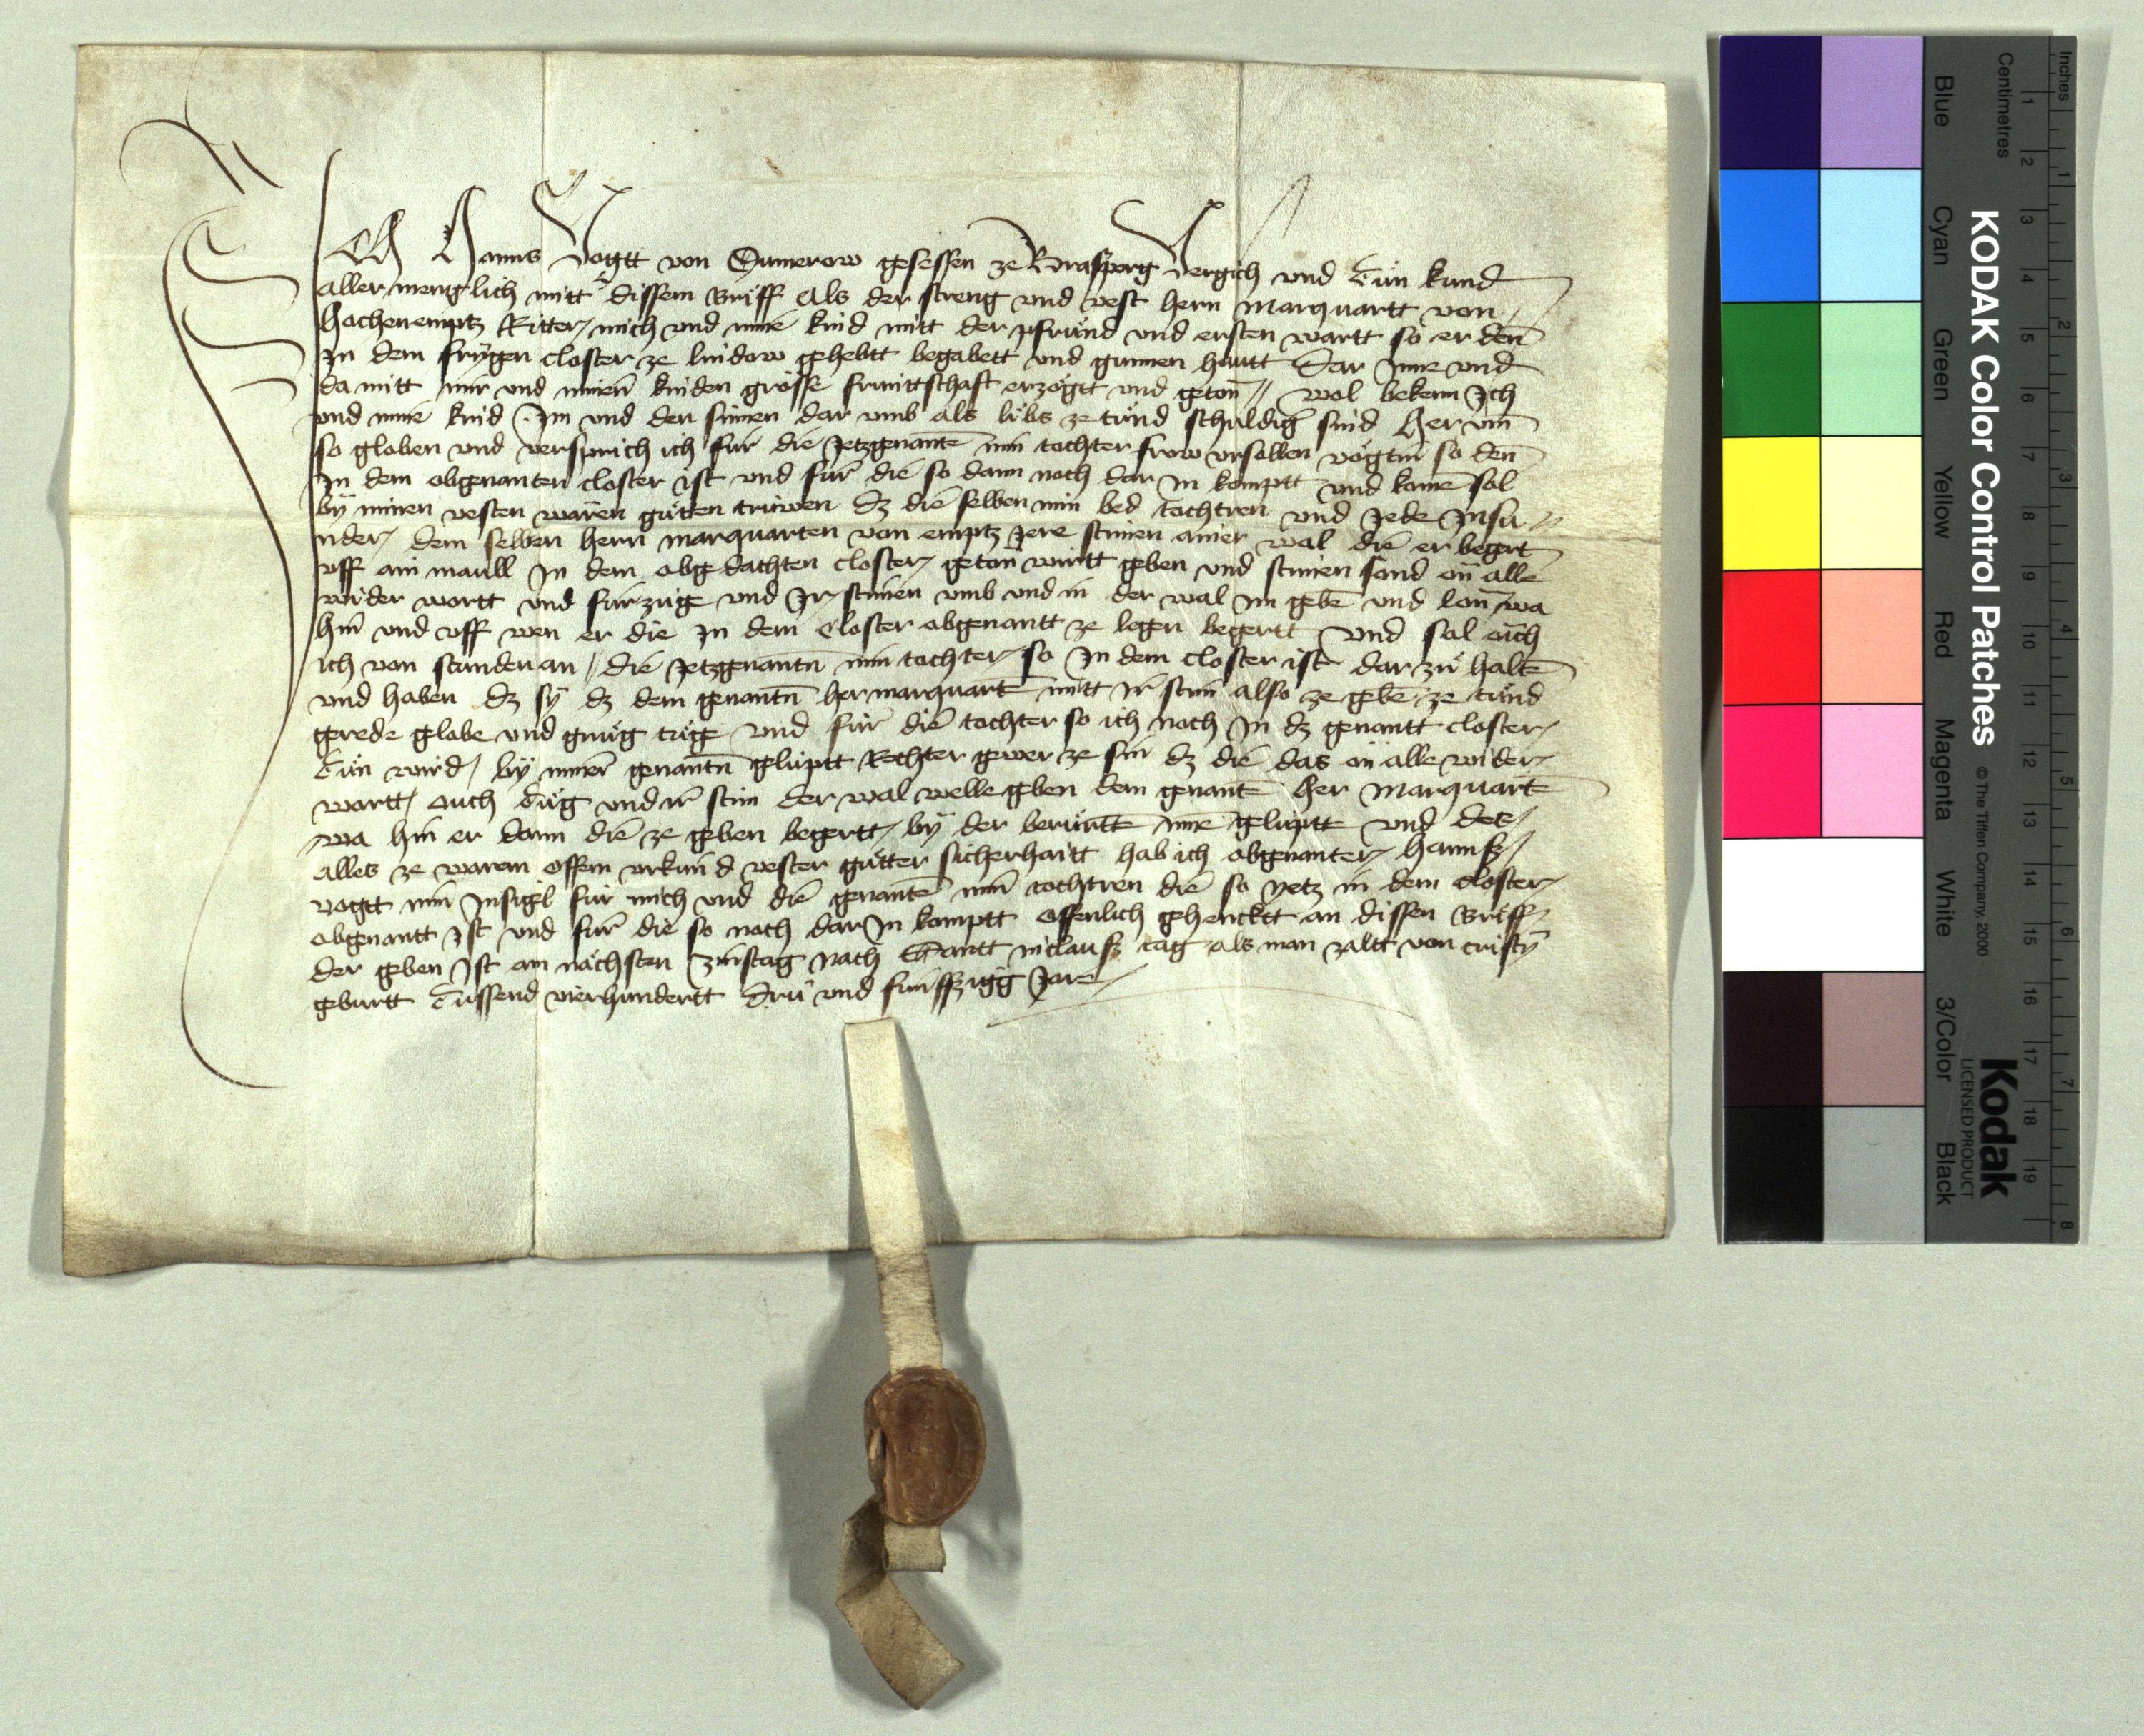 ICh Hanns Vogtt von Sumerow gesessen ze Prasperg Vergich vnd tůn kund
aller menglich mitt dissem brieff Als der streng vnd vest herr marquartt von
Hochenemptz Ritter mich vnd mine kind mitt der pfrůnd vnd ersten wartt so er den
In dem frygen closter ze lindow gehebtt begabett vnd gunnen hautt Dar Inne vnd
da mitt mir vnd minen kinden grösse fruntschaft erzögtt vnd geton wol bekenn Ich
vnd mine kind Im vnd den sinen dar vmb als libs ze tůnd schuldig sind Her vm
so globen vnd versprich ich für die Jetzgenante min tochter frow vrsellen vögtin so den
In dem obgenanten closter ist vnd für die so dann noch dar In komptt vnd kome sol
by minen vesten wären gůtten trüwen dz die selben min bed tochtren vnd Jede Insu
nder dem selben herrn marquarten von emptz Jere stimen ainer wal die er begert
vff ain maull In dem obgedachten closter geton wirtt geben vnd stimen sond on alle
wider wortt vnd fürzüge vnd Ir stimen vmb vnd in der wal im gebe vnd lon wa
hin vnd vff wen er die In dem Closter obgenantt ze legen begertt Vnd sol öch
ich von stunden an die Jetzgenantn min tochter so In dem closter ist dar zů halte
vnd haben dz sy dz dem genantn her marquarte mitt Ir stim also ze gebe ze tůnd
gerede globe vnd gnůg tůge Vnd für die tochter so ich noch In dz genantt closter
tůn wird by miner genantn glüptt Rechter gewer ze sin dz die das on alle wider
wortt ouch tůg vnd ir stim der wal welle geben dem genante her marquarte
wa hin er dann die ze geben begertt by der berůrtte mine gelüptt vnd des
alles ze warem offem vrkund vester gůtter sicherhaitt hab ich obgenanter hannß
vogtt min Insigel für mich vnd die genante min tochtren die so yetz in dem closter
obgenantt Ist vnd für die so noch dar In komptt offenlich gehencktt an dissen brieff
der geben Ist am nächsten zinstag nach Santt niclauß tag als man zaltt von cristy
geburtt tussend vierhundertt drü vnd fünffzigg Jare
KODAK Color Control Patches
© The Tiffen Company, 2000
Kodak
LICENSED PRODUCT
Inches 1 2 3 4 5 6 7 8
Centimetres 1 2 3 4 5 6 7 8 9 10 11 12 13 14 15 16 17 18 19
Blue Cyan Green Yellow Red Magenta White 3/Color Black